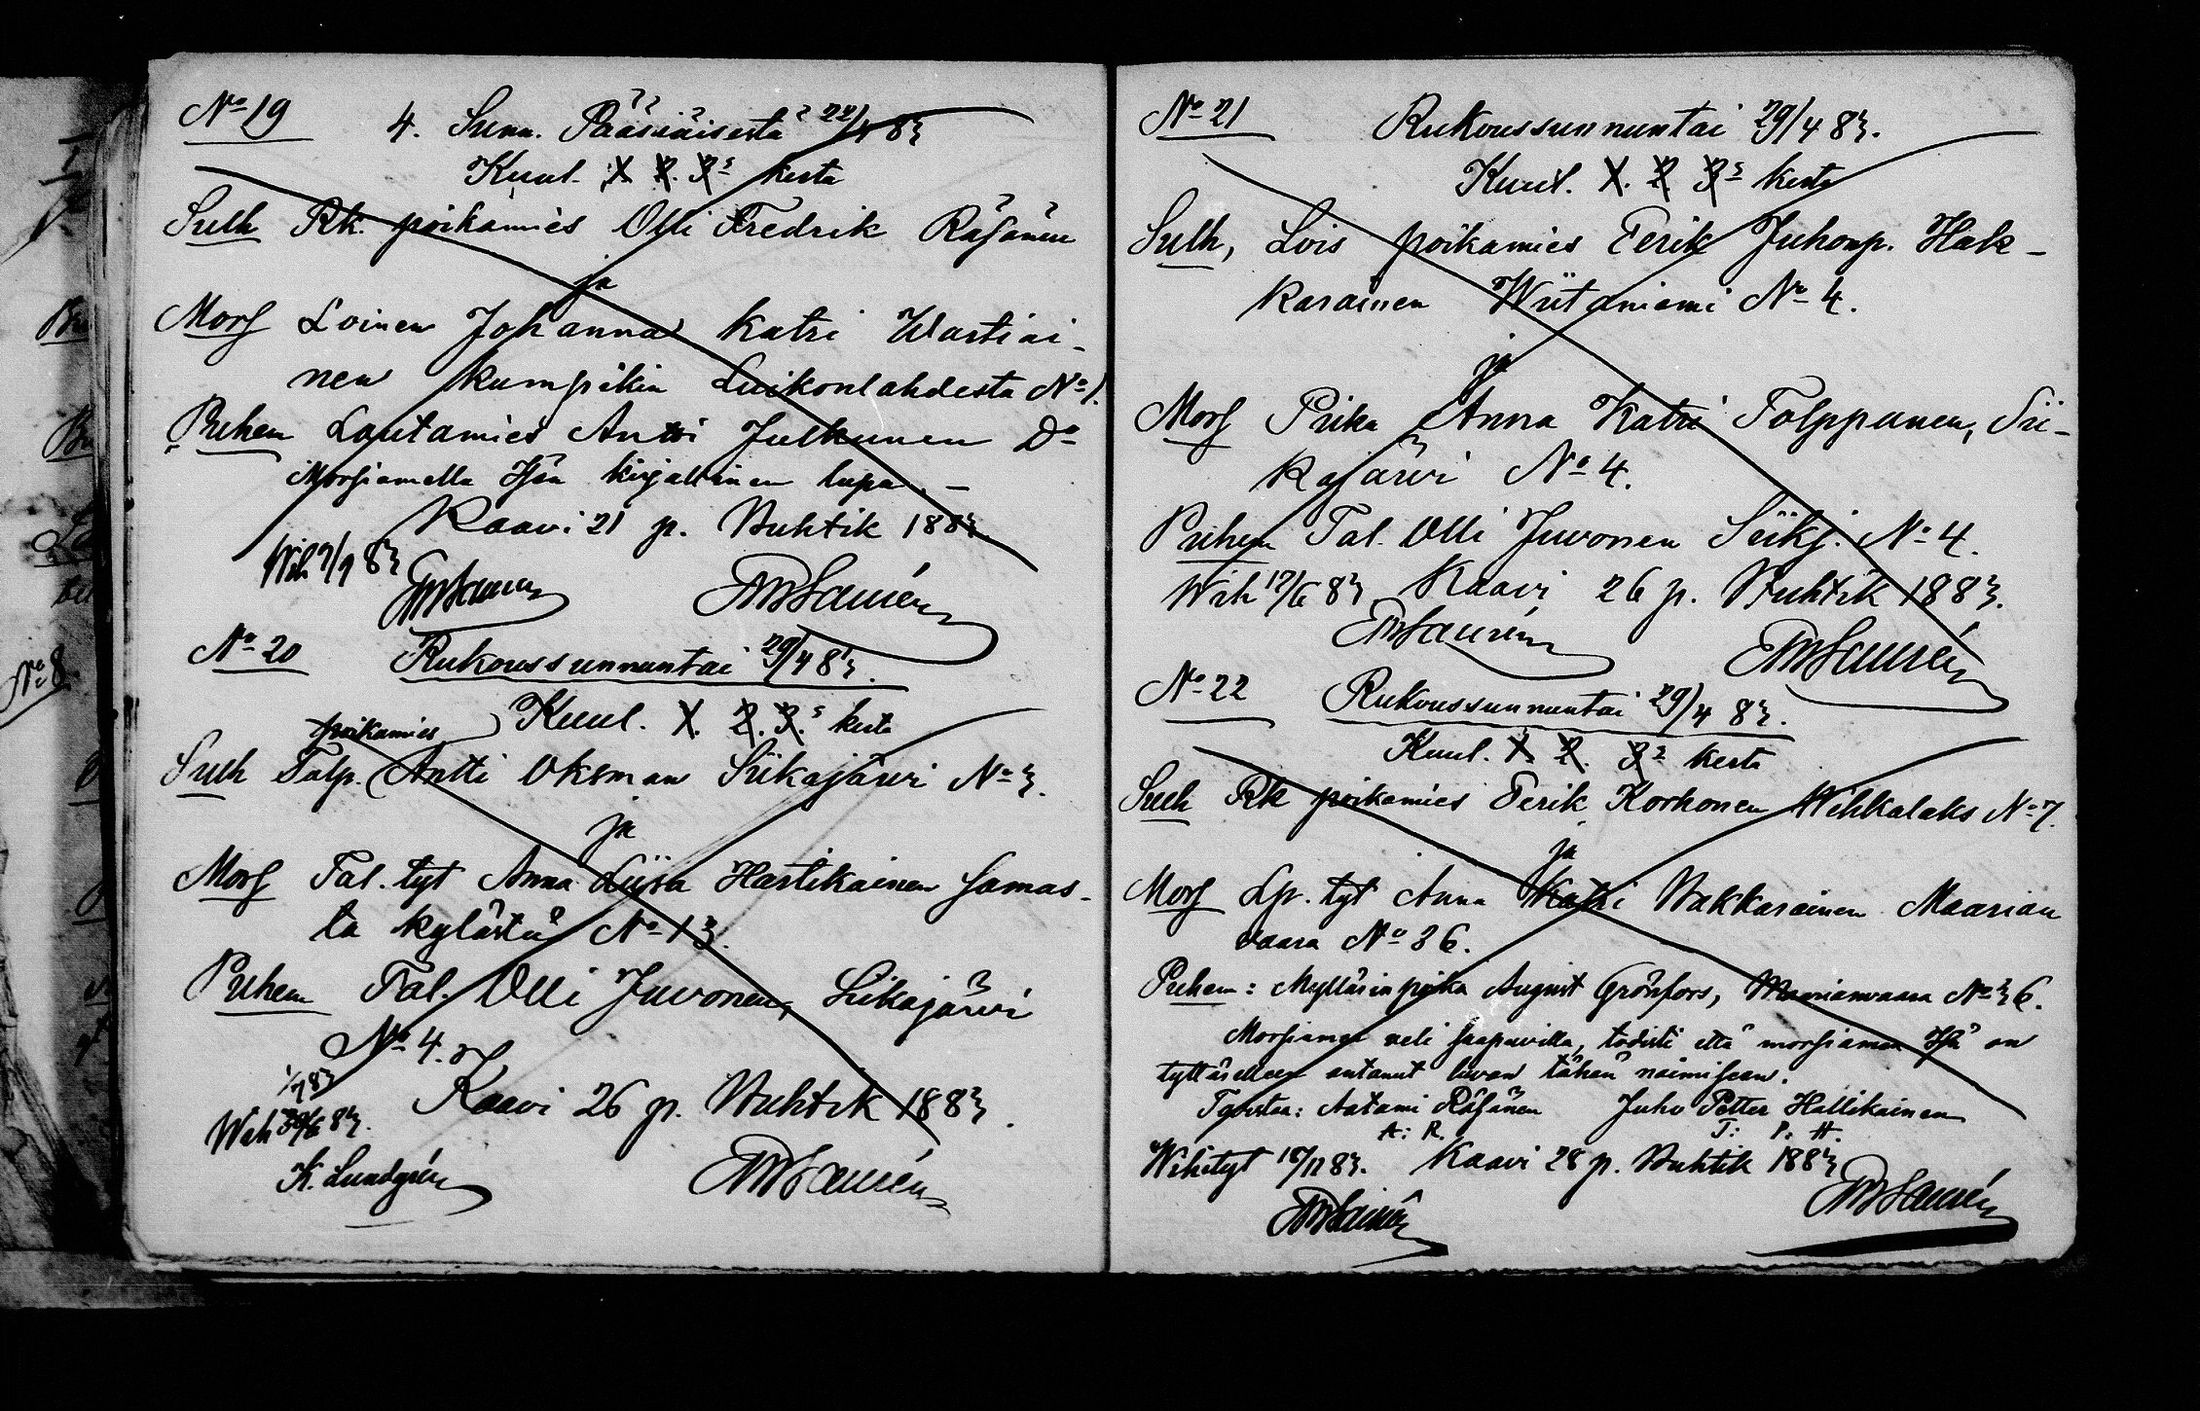 No 19
4. Sunn. Pääsiäisestä 22/4 83
Kuul. 1. 2. 3s kerta
Sulh Rk. poikamies Olli Fredrik Räsänen
ja
Mors Loinen Johanna Katri Wartiai-
nen kumpikin Luikonlahdesta No 1.
Puhem Lautamies Antti Julkunen Do
Morsiamella Isän kirjallinen lupa. —
Kaavi 21 p. Huhtik 1883
Wih 83
No 20
Rukoussunnuntai 29/4 83.
Kuul. 1. 2. 3s kerta
poikamies
Sulh Talp. Antti Oksman Siikajärwi No 3.
ja
Mors Tal. tyt Anna Liisa Hartikainen samas-
ta kylästä No 13.
Puhem Tal. Olli Juvonen, Siikajärwi
No 4.
1/7 83
Wih 30/6 83.
Kaavi 26 p. Huhtik 1883.
K. Lundgrén
No 21
Rukoussunnuntai 29/4 83.
Kuul. 1. 2 3s kerta
Sulh, Lois poikamies Eerik Juhonp. Hak-
karainen Wiitaniemi No 4.
ja
Mors Piika Anna Katri Tolppanen, Sii-
kajärwi No 4.
Puhem Tal. Olli Juvonen Siikj. No 4.
Wih 17/6 83 Kaavi 26 p. Huhtik 1883.
No 22
Rukoussunnuntai 29/4 83.
Kuul. 1. 2. 3s kerta
Sulh Rk poikamies Eerik Korhonen Wihkalaks No 7.
ja
Mors Lp. tyt Anna Katri Hakkarainen Maarian
vaara No 36.
Puhem: Myllärin poika August Grönfors, Maarianvaara No 36.
Morsiamen veli saapuvilla, todisti että morsiamen Isä on
tyttärelleen antanut luvan tähän naimiseen.
Todistaa: Aatami Räsänen Juho Petter Hallikainen
A: R. J: P: H.
Wihityt 83. Kaavi 28 p. Huhtik 1883